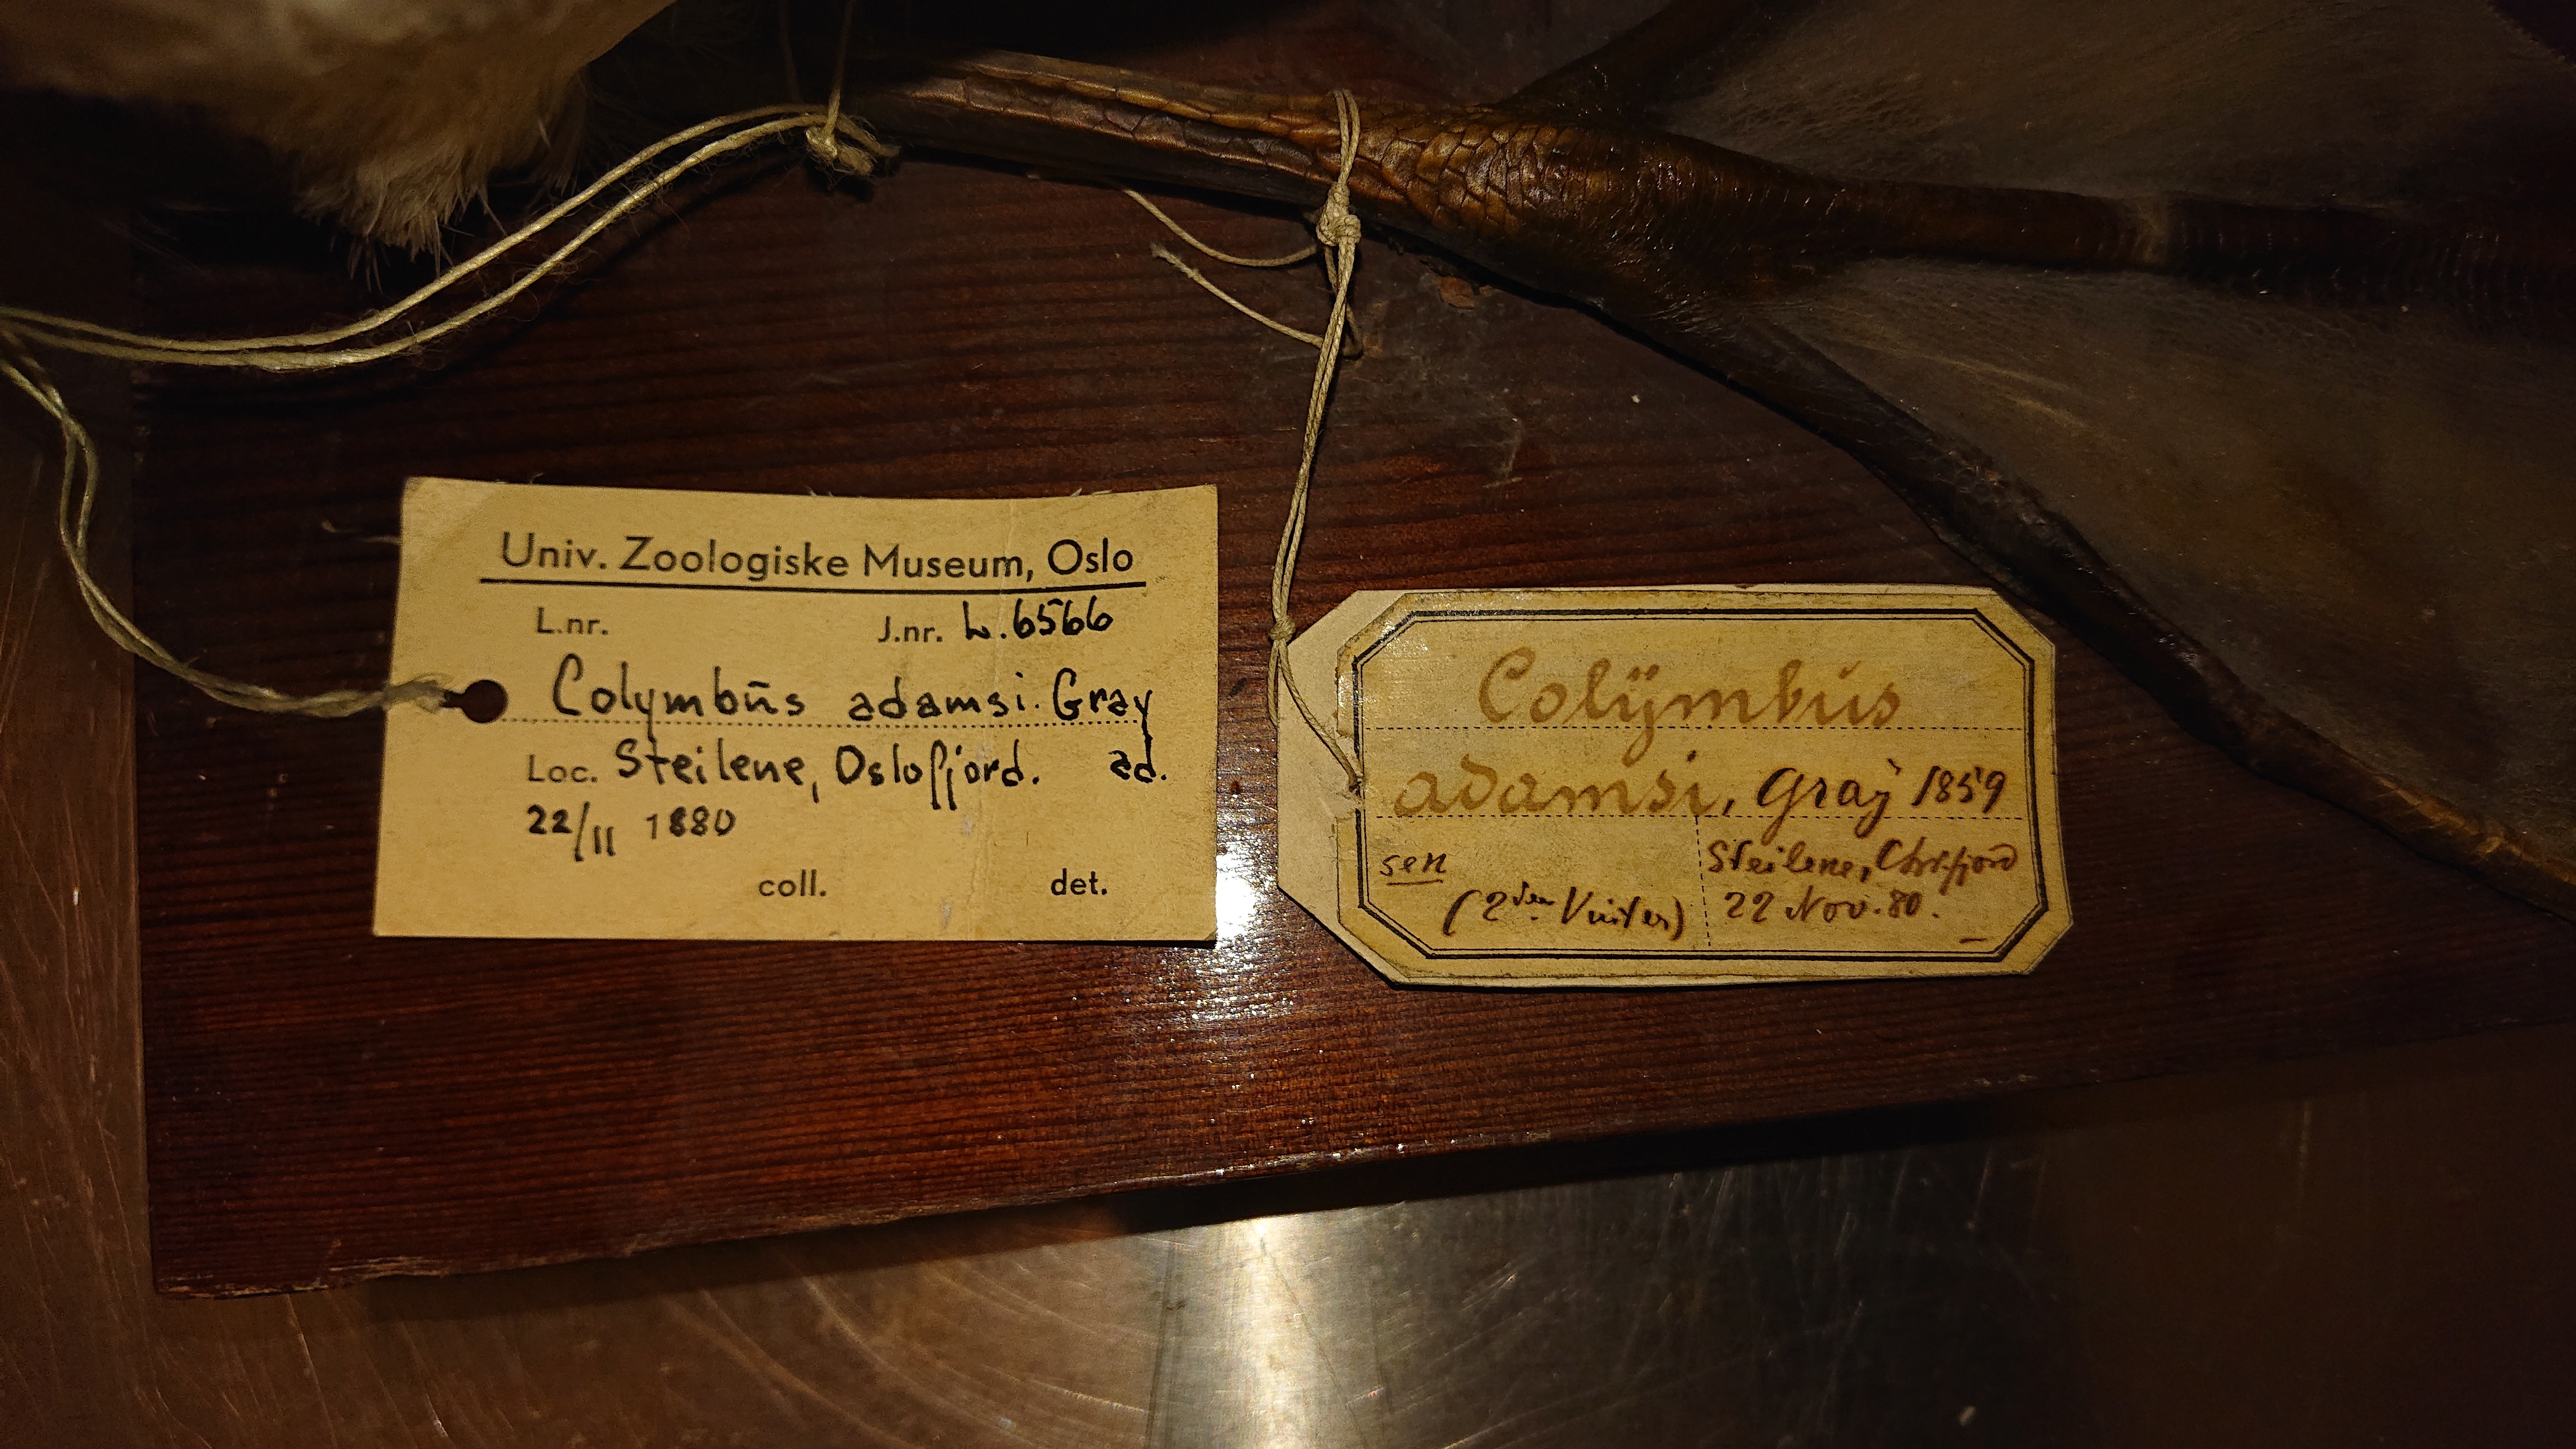 Univ. Zoologiske Museum, Oslo
L.nr. J.nr. L.6566
Colymbus adamsi. Gray
Loc. Steilene, Oslofjord. ad.
22/11 1880
coll. det.
Colÿmbus
adamsi, Graÿ 1859
sen
(2den Vinter)
Steilene, Chr.fjord
22 Nov. 80.